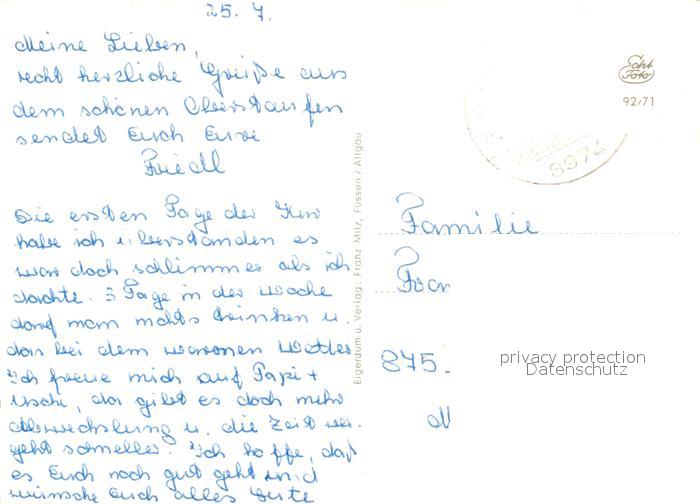 25. 7.
Meine Lieben,
recht herzliche Grüße aus
dem schönen Oberstaufen
sendet Euch Eure
Friedl
Die ersten Tage der Kur
habe ich überstanden es
war doch schlimmer als ich
dachte. 3 Tage in der Woche
darf man nichts trinken u.
das bei dem warmen Wetter
Ich freue mich auf Papi +
Uschi, da gibt es doch mehr
Abwechslung u. die Zeit ver-
geht schneller. Ich hoffe, daß
es Euch noch gut geht und
wünsche Euch alles Gute
Eigentum u. Verlag: Franz Milz, Füssen / Allgäu
Echt
Foto
92/71
8974
Familie
Fran
875
privacy protection
Datenschutz
M